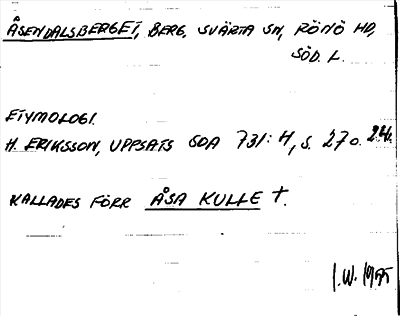 ÅSENDALSBERGET, BERG, SVÄRTA SN, RÖNÖ HD,
SÖD. L.
ETYMOLOGI.
H. ERIKSSON, UPPSATS SOA 731: H, S. 27 o. 24.
KALLADES FÖRR ÅSA KULLE †.
I.W. 1975